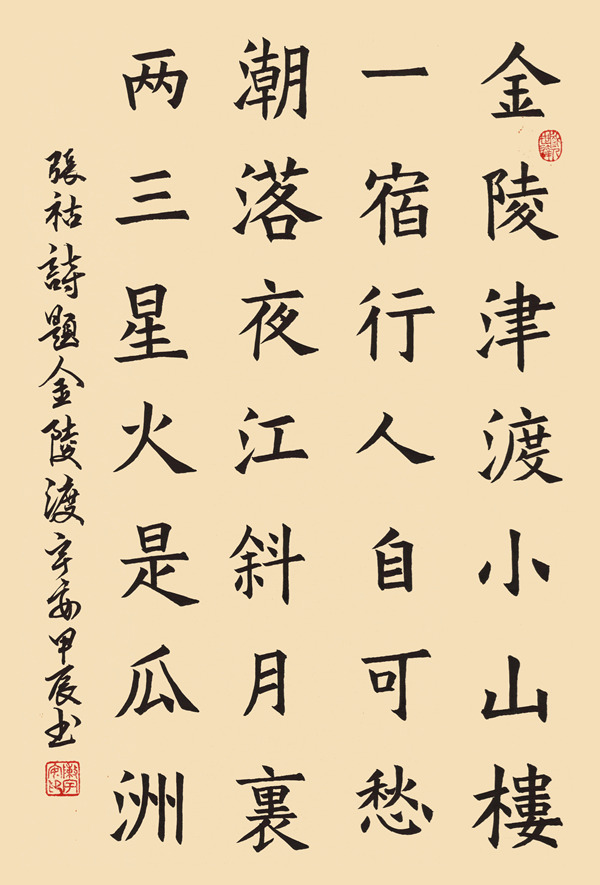 金陵津渡小山樓
一宿行人自可愁
潮落夜江斜月裏
两三星火是瓜洲
張祜詩題金陵渡宇安甲辰书